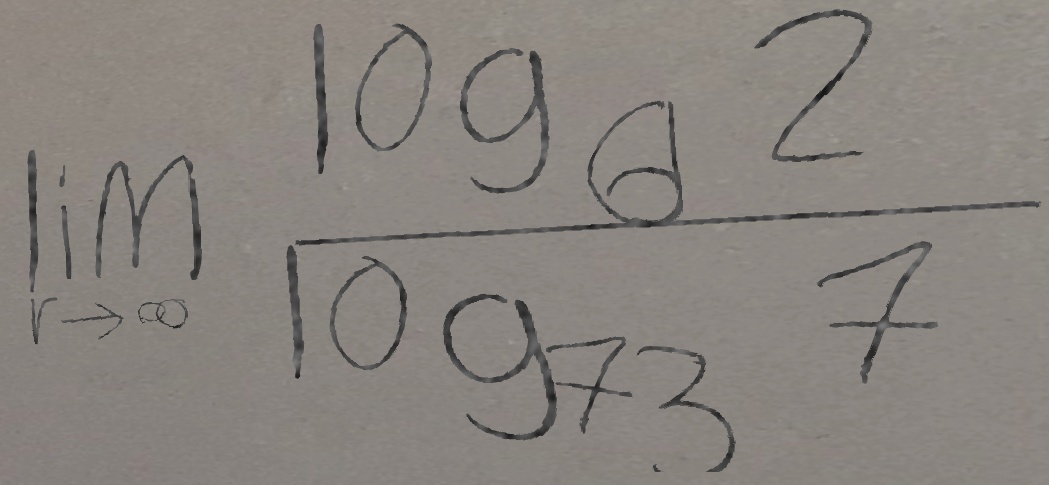 \lim_{r \to \infty} \frac{\log_{6} 2}{\log_{73} 7}